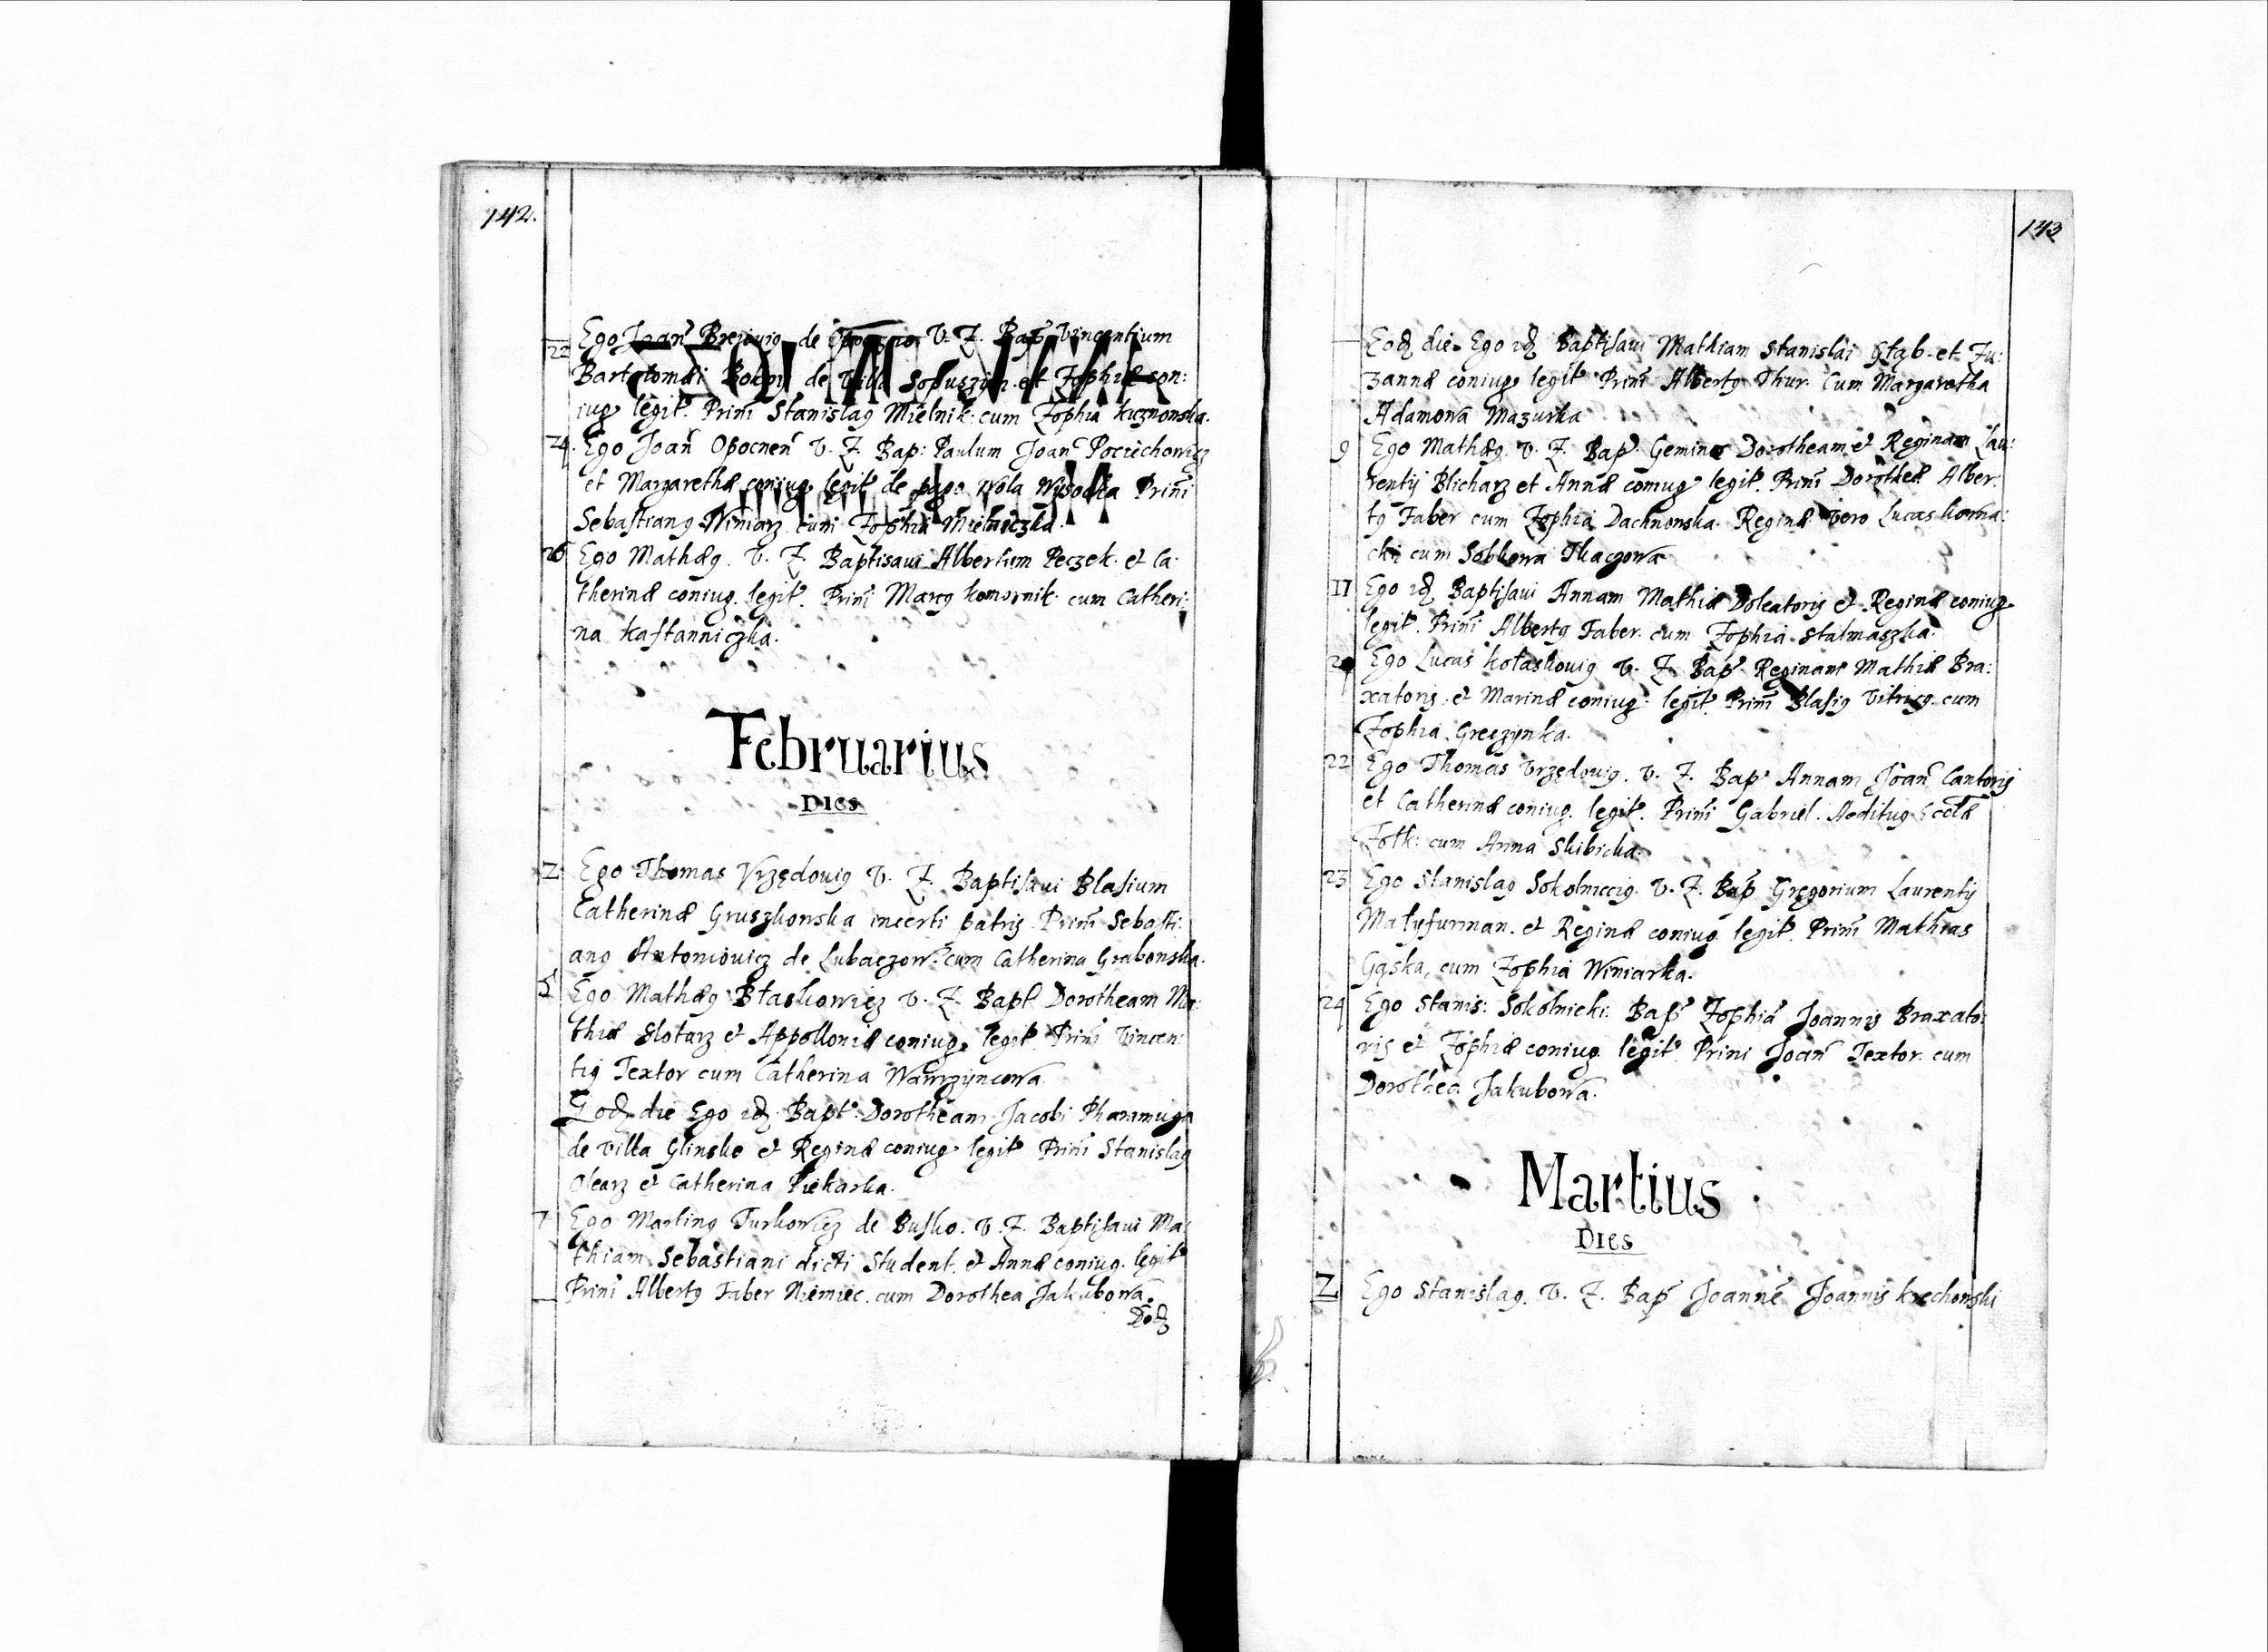 142.
22 Ego Joan Brejouig de V. Z. Bap Vincentium
Bartolomæi de villa Sopuszyn et Zophiæ con:
iug legit. Prini Stanislag Mielnik cum Zophia kuznonska.
24. Ego Joan Opocnen V. Z. Bap: Paulum Joan Pociechowicz
et Margarethæ coniug legit de pago Wola Wisocka Prini
Sebastiang Winiarz cum Zophia Mielniczka.
26 Ego Mathæg. V. Z. Baptisaui Albertum Peczek. et Ca:
therinæ coniug. legit. Prini Marcg komornik cum Catheri:
na kasstanniczka.
Februarius
Dies
2. Ego Thomas Vrzędouig V. Z. Baptisaui Blasium
Catherinæ Gruszkonska incerti patris Prini Sebasti:
ang Antoniouicz de Lubaczow. cum Catherina Grabonska.
5 Ego Mathæg Błaskowicz V. Z. Bapt Dorotheam Ma:
thiæ Slotarz et Appolloniæ coniug. legit Prini Vincen:
tig Textor cum Catherina Wawrzyncowa
Eod die Ego id Bapt. Dorotheam Jacobi Pharamuga
de villa Glinsko et Reginæ coniug legit Prini Stanislag
Olearz et Catherina Piekarka.
7 Ego Marting Turkowicz de Busko. V. Z. Baptisaui Ma:
thiam Sebastiani dicti Student. et Annæ coniug. legit
Prini Albertg Faber Niemiec. cum Dorothea Jakubowa.
Eod
143
Eod die Ego id Baptisaui Mathiam Stanislai Głąb et Zu:
zannæ coniug legit Prini Albertg Thur. Cum Margaretha
Adamowa Mazurka
9 Ego Mathæg. V. Z. Bap. Gemino Dorotheam et Reginam Lau:
rentij Blicharz et Annæ coniug legit. Prini Dorotheæ Alber:
tg Faber cum Zophia Dachnonska. Reginæ Vero Lucas korna:
cki cum Sobkowa Tkaczowa
11 Ego id Baptisaui Annam Mathiæ Doleatoris et Reginæ coniug
legit. Prini Albertg Faber cum Zophia Stalmaszka.
Ego Lucas kołaskouig V. Z. Bap. Reginam Mathiæ Bra:
xatoris et Marinæ coniug legit. Prini Blasig Vitricg cum
Zophia Greczynka.
22 Ego Thomas Vrzędouig. V. Z. Bap. Annam Joan Cantoris
et Catherinæ coniug. legit. Prini Gabriel. Aeditug Ecclæ
Zolk: cum Anna Skibicka.
23 Ego Stanislag Sokolniccig. V. Z. Bap Gregorium Laurentij
Małyfurman. et Reginæ coniug legit. Prini Mathias
Gąska, cum Zophia Winiarka.
24 Ego Stanis: Sokolnicki. Bap. Zophiã Joannis Braxato:
ris et Zophiæ coniug legit. Prini Joan Textor cum
Dorothea Jakubowa.
Martius
Dies
2 Ego Stanislag. V. Z. Bap Joannẽ Joannis krechonski